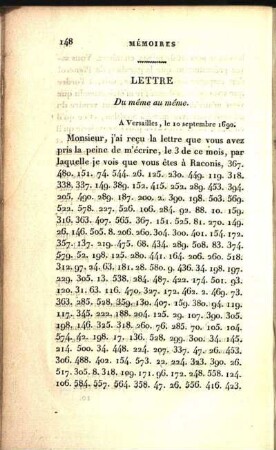 148 MÉMOIRES
LETTRE
Du même au même.
A Versailles, le 10 septembre 1690.
Monsieur, j'ai reçu la lettre que vous avez
pris la peine de m'écrire, le 3 de ce mois, par
laquelle je vois que vous êtes à Raconis, 367.
480. 151. 74. 544. 26. 125. 230. 449. 119. 318.
338. 337. 149. 389. 152. 415. 252. 289. 453. 394.
205. 490. 289. 187. 200. 2. 390. 198. 503. 569.
522. 578. 227. 526. 106. 284. 92. 88. 10. 159.
316. 363. 407. 565. 367. 151. 525. 81. 270. 149.
26. 146. 505. 8. 206. 264. 304. 300. 401. 154. 172.
357. 137. 219. 475. 68. 434. 289. 508. 83. 374.
579. 52. 198. 125. 280. 441. 164. 206. 260. 518.
312. 97. 24. 63. 181. 28. 580. 9. 436. 34. 198. 197.
229. 305. 13. 538. 284. 487. 422. 174. 501. 93.
120. 31. 63. 116. 470. 327. 172. 462. 2. 469. 73.
363. 285. 528. 359. 130. 407. 159. 380. 94. 119.
117. 345. 222. 188. 204. 125. 29. 107. 390. 305.
198. 146. 325. 318. 260. 76. 285. 70. 105. 104.
574. 42. 198. 17. 136. 528. 299. 300. 34. 145.
214. 500. 34. 448. 224. 207. 337. 47. 26. 453.
306. 488. 402. 154. 23. 190. 22. 222. 324. 390. 26.
517. 8. 305. 8. 318. 109. 171. 96. 172. 248. 228. 124.
106. 584. 557. 564. 358. 47. 26. 556. 416. 423.